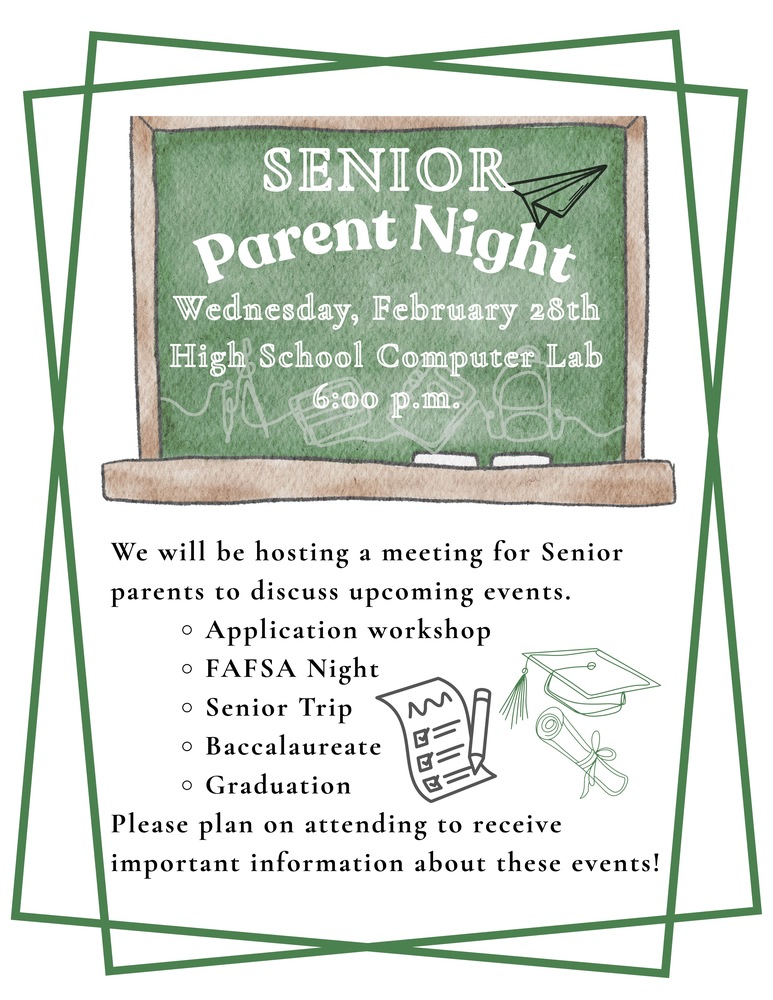 SENIOR
Parent Night
Wednesday, February 28th
High School Computer Lab
6:00 p.m.
We will be hosting a meeting for Senior
parents to discuss upcoming events.
Application workshop
FAFSA Night
Senior Trip
Baccalaureate
Graduation
Please plan on attending to receive
important information about these events!